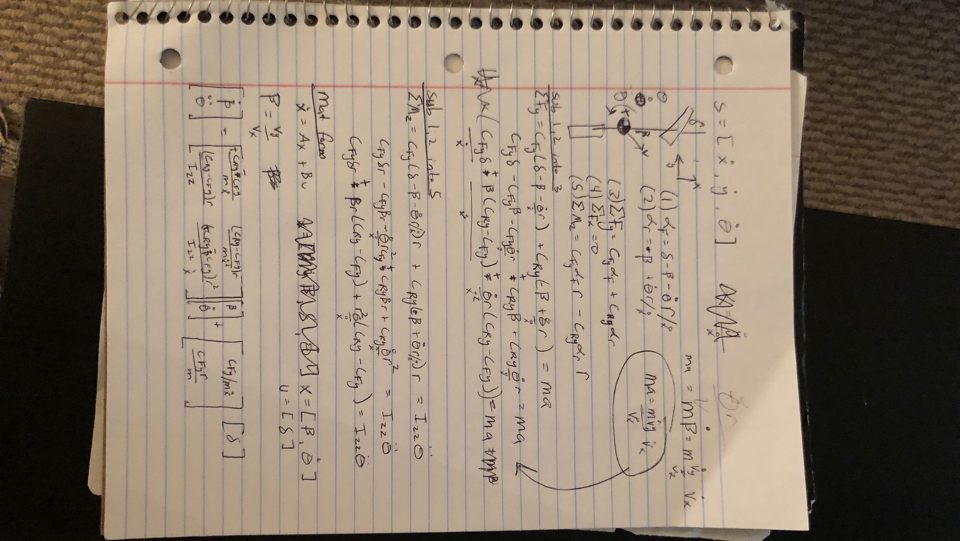 s = [ ẋ , ẏ , θ̇ ]
θr
ma = mβ̇ = m v̇y/vx v̇x
δ
x
y
β
v
(1) αf = δ - β - θ̇r/ẋ
(2) αr = β + θ̇r/ẋ
ma = mv̇y/vx v̇x
(3) ΣFy = CFyαf + CRyαr
(4) ΣFx = 0
(5) ΣMz = CFyαf r - CRyαr r
Sub 1,2 into 3
ΣFy = CFy(δ - β - θ̇r/ẋ) + CRy(β + θ̇r/ẋ) = ma
CFyδ - CFyβ - CFyθ̇r/ẋ + CRyβ + CRyθ̇r/ẋ = ma
(CFyδ/ẋ + β(CRy-CFy)/ẋ + θ̇r/ẋ²(CRy-CFy)) = ma
Sub 1,2 into 5
ΣMz = CFy(δ - β - θ̇r/ẋ)r + CRy(β + θ̇r/ẋ)r = Izzθ̈
CFyδr - CFyβr - θ̇r²/ẋ CFy + CRyβr + CRyθ̇/ẋ r² = Izzθ̈
CFyδr + βr(CRy - CFy) + r²θ̇/ẋ(CRy - CFy) = Izzθ̈
Mat form
ẋ = Ax + Bu x = [ β , θ̇ ]
u = [ δ ]
β = vy/vx
[β̇ θ̈] = [CRy CFy/mẋ (CRy-CFy)r/mẋ² (CRy-CFy)r/Izz (CRy CFy)r²/Izz ẋ] [β θ̇] + [CFy/mẋ CFyr/m] [δ]